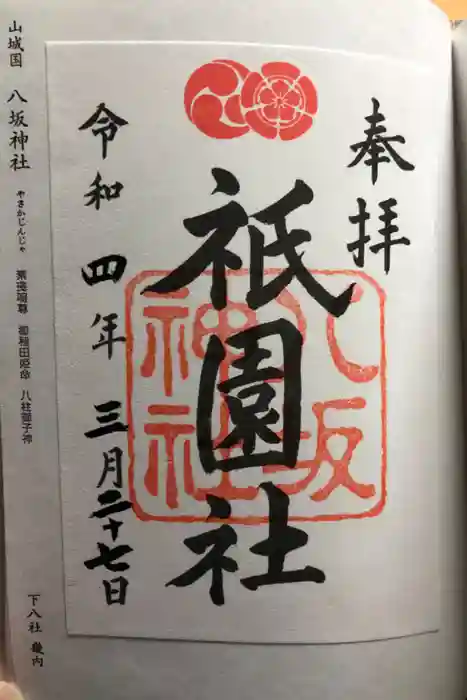 奉拝
祇園社
八坂
神社
令和四年三月二十七日
山城国 八坂神社 やさかじんじゃ 素戔嗚尊 櫛稲田姫命 八柱御子神
下八社 畿内